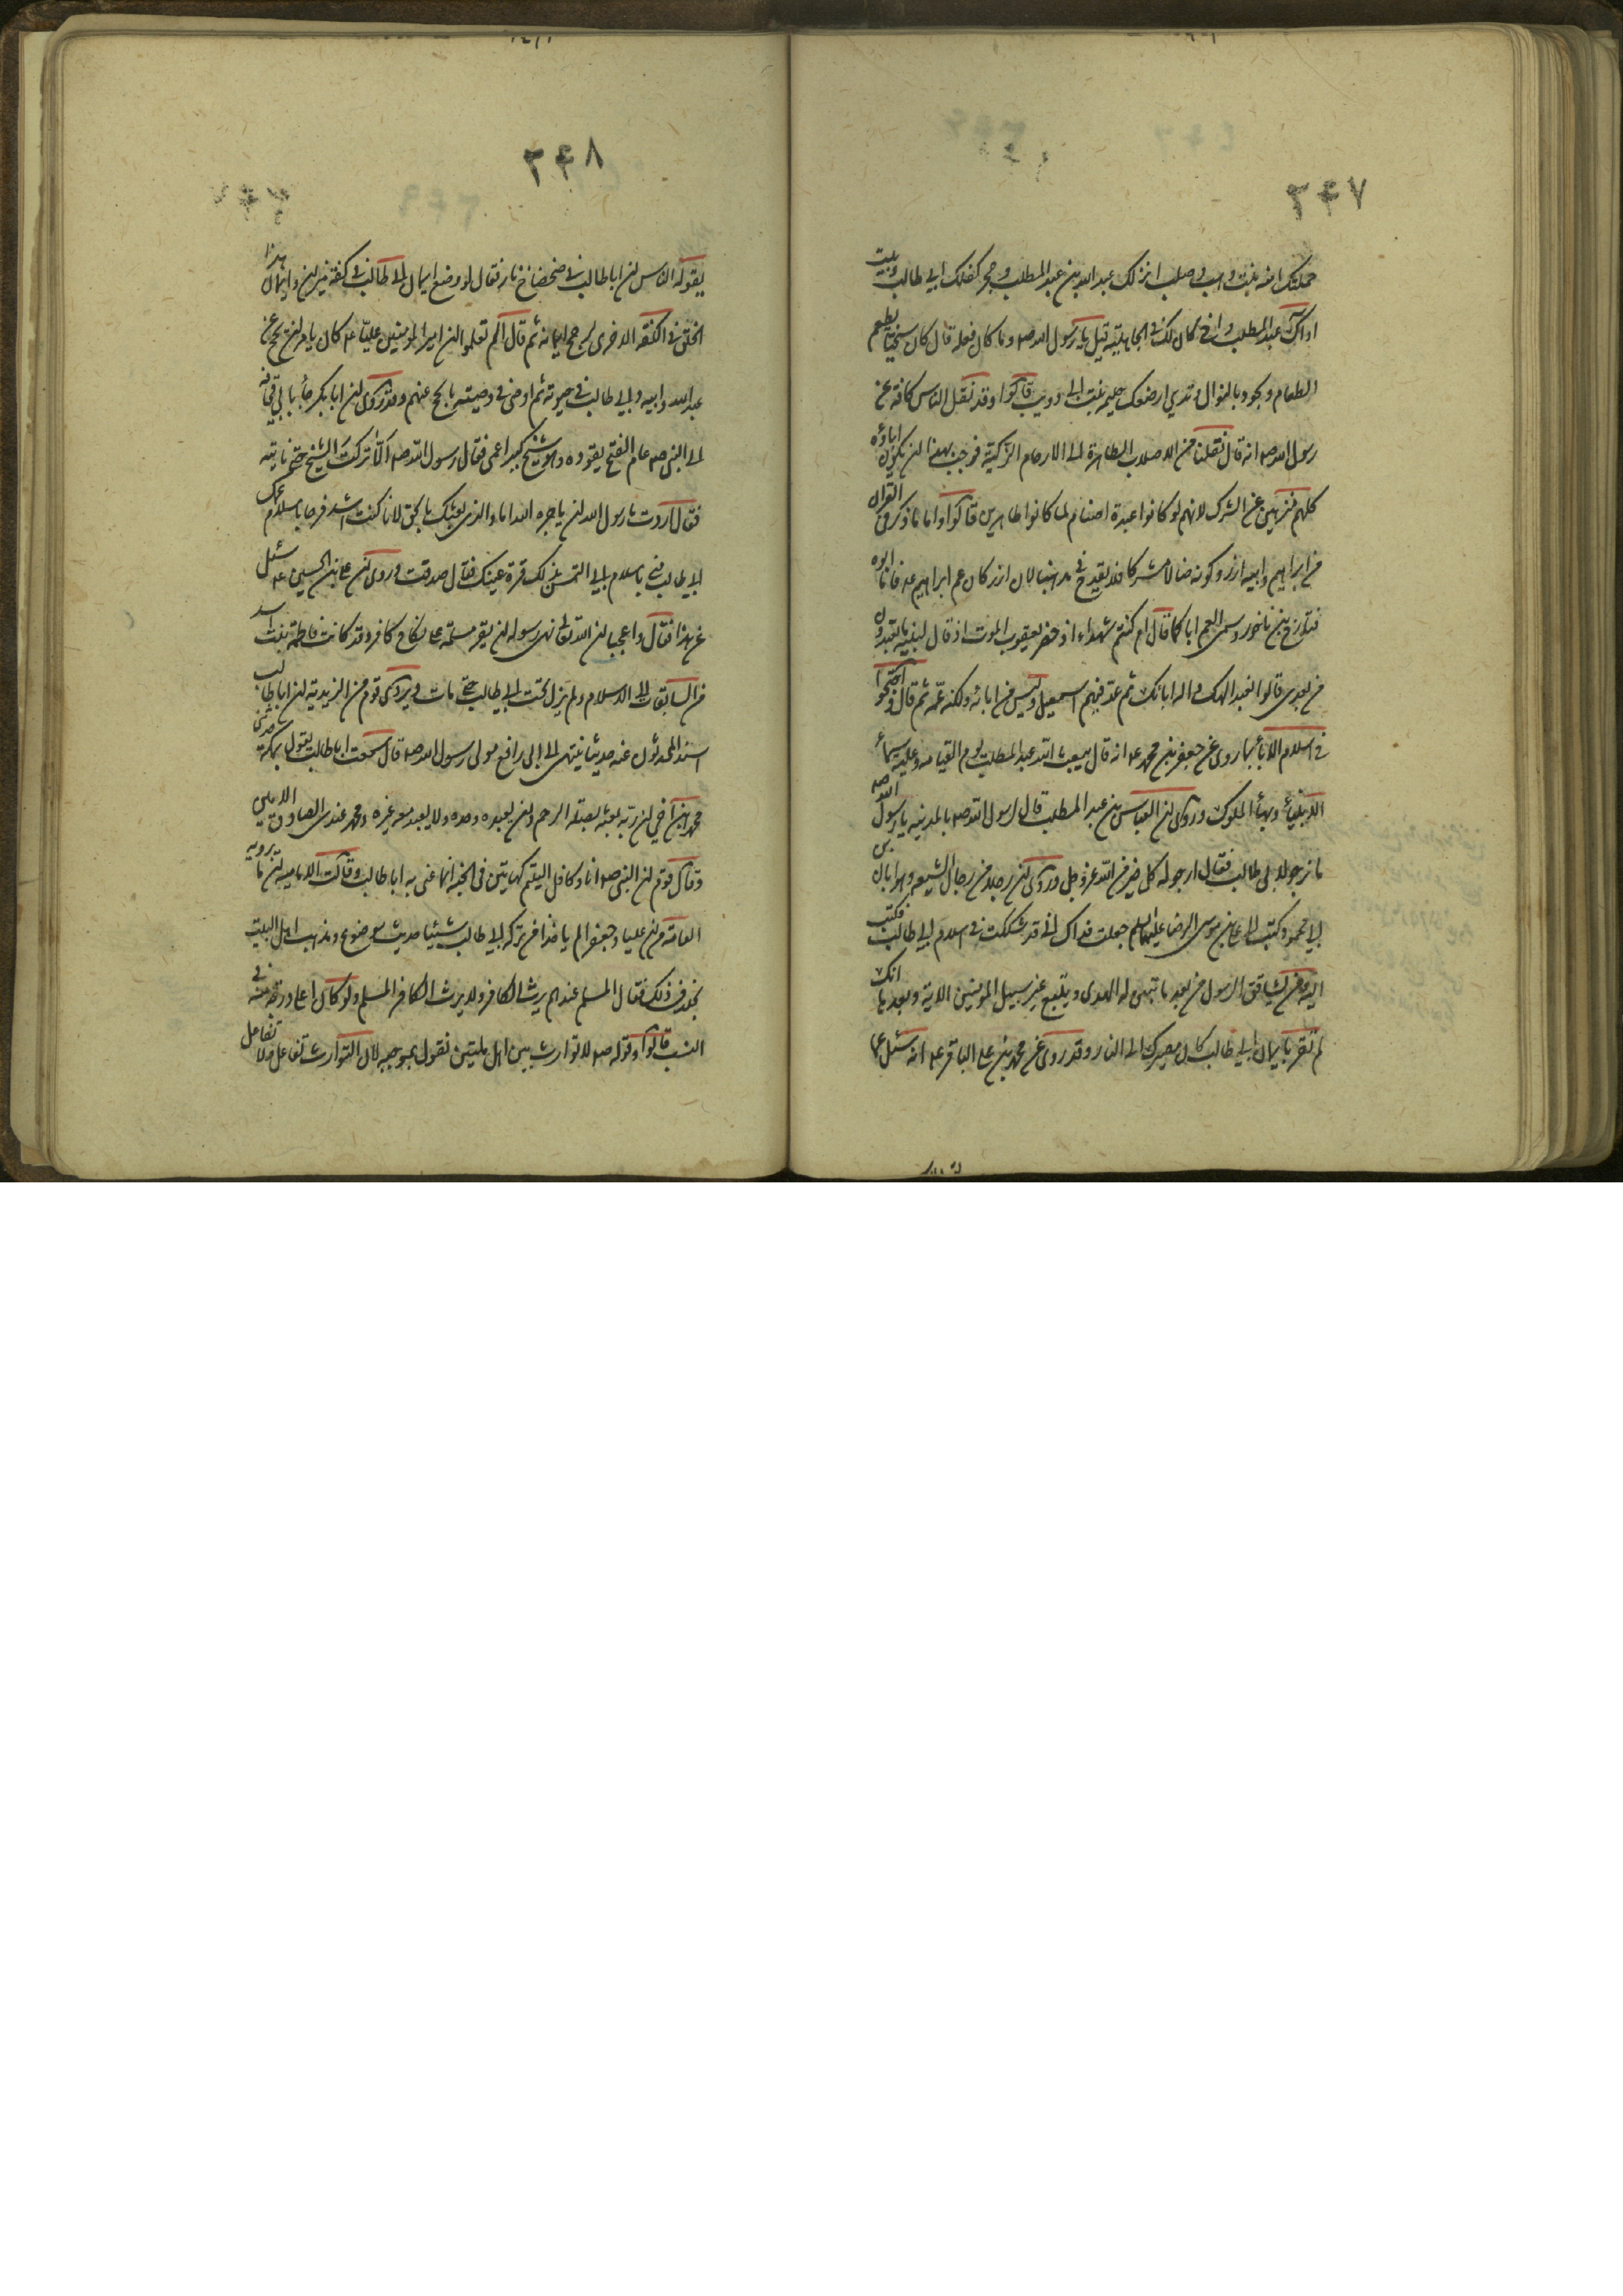 ٢٤٧
حملتك امنه بنت وهب وصلب انزلك عبد الله بن عبد المطلب وحجر كفلك ابي طالب وبيت
اواك عبد المطلب واخ كان لك في الجاهلية قيل يا رسول الله صه وما كان فعله قال كان سخيا يطعم
الطعام ويجود بالنوال وثدي ارضعك حليمه بنت ابي ذويب قالوا وقد نقل الناس كافة عن
رسول الله صه انه قال نقلنا من الاصلاب الطاهرة الى الارحام الزكية فوجب بهذا ان يكون اباؤه
كلهم منزهين عن الشرك لانهم لو كانوا عبدة اصنام لما كانوا طاهرين قالوا واما ما ذكر في القران
من ابراهيم وابيه ازر وكونه ضالا مشركا فلا يقدح في مذهبنا لان ازر كان عم ابراهيم عه فاما ابوه
فتارخ بن ناخور وسمى العم ابا كما قال ام كنتم شهداء اذ حضر يعقوب الموت اذ قال لبنيه ما تعبدون
من بعدي قالوا نعبد الهك واله ابائك ثم عد فيهم اسمعيل وليس من ابائه ولكنه عمه ثم قال واحتجوا
في اسلام الاباء بما روى عن جعفر بن محمد عه انه قال يبعث الله عبد المطلب يوم القيامه وعليه سيماء
الانبياء وبهاء الملوك وروى ان العباس بن عبد المطلب قال لرسول الله صه بالمدينه يا رسول الله صه
ما نرجو لابي طالب فقال ارجو له كل خير من الله عز وجل وروى ان رجلا من رجال الشيعه وهو ابان بن
ابي محمود كتب الى علي بن موسى الرضا عليهما السلم جعلت فداك اني قد شككت في اسلام ابي طالب فكتب
اليه ومن يشاقق الرسول من بعد ما تبين له الهدى ويتبع غير سبيل المومنين الاية وبعدها انك
لم تقر بايمان ابي طالب كان مصيرك الى النار وقد روى عن محمد بن علي الباقر عه انه سئل عما
٢٤٨
يقوله الناس ان ابا طالب في ضحضاح من نار فقال لو وضع ايمان ابي طالب في كفة ميزان وايمان هذا
الخلق في الكفة الاخرى لرجح ايمانه ثم قال الم تعلموا ان امير المومنين عليا عه كان يامر ان يحج عن
عبد الله وابيه وابي طالب في حيوته ثم اوصى في وصيته بالحج عنهم وقد روى ان ابا بكر جاء بابي قحافه
الى النبي صه عام الفتح يقوده وهو شيخ كبير اعمى فقال رسول الله صه الا تركت الشيخ حتى ناتيه
فقال اردت يا رسول الله ان ياجره الله اما والذي بعثك بالحق لانا كنت اشد فرحا باسلام عمك
ابي طالب مني باسلام ابي التمس بذلك قرة عينك فقال صدقت وروى ان علي بن الحسين عه سئل
عن هذا فقال واعجبا ان الله تعالى نهى رسوله ان يقر مسلمة على نكاح كافر وقد كانت فاطمة بنت اسد
من السابقات الى الاسلام ولم يزل تحت ابي طالب حتى مات ويروى قوم من الزيدية ان ابا طالب
اسند المحدثون عنه حديثا ينتهى الى ابي رافع مولى رسول الله صه قال سمعت ابا طالب يقول بمكه حدثني
محمد ابن اخي ان ربه بعثه بصلة الرحم وان يعبده وحده ولا يعبد معه غيره ومحمد عندي الصادق الامين
وقال قوم ان النبي صه انا وكافل اليتيم كهاتين في الجنة انما عنى به ابا طالب وقالت الاماميه ان ما يرويه
العامة من ان عليا وجعفرا لم ياخذا من تركه ابي طالب شيئا حديث موضوع ومذهب اهل البيت
بخلاف ذلك فقال المسلم عندهم يرث الكافر ولا يرث الكافر المسلم ولو كان اعلى درجة منه في
النسب قالوا وقوله صه لا توارث بين اهل ملتين نقول بموجبه لان التوارث تفاعل ولا تفاعل